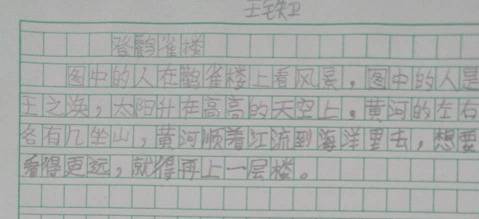 王铁卫
登鹳雀楼
图中的人在鹳雀楼上看风景，图中的人是
王之涣，太阳升在高高的天空上，黄河的左右
各有几坐山，黄河顺着江流到海洋里去，想要
看得更远，就得再上一层楼。